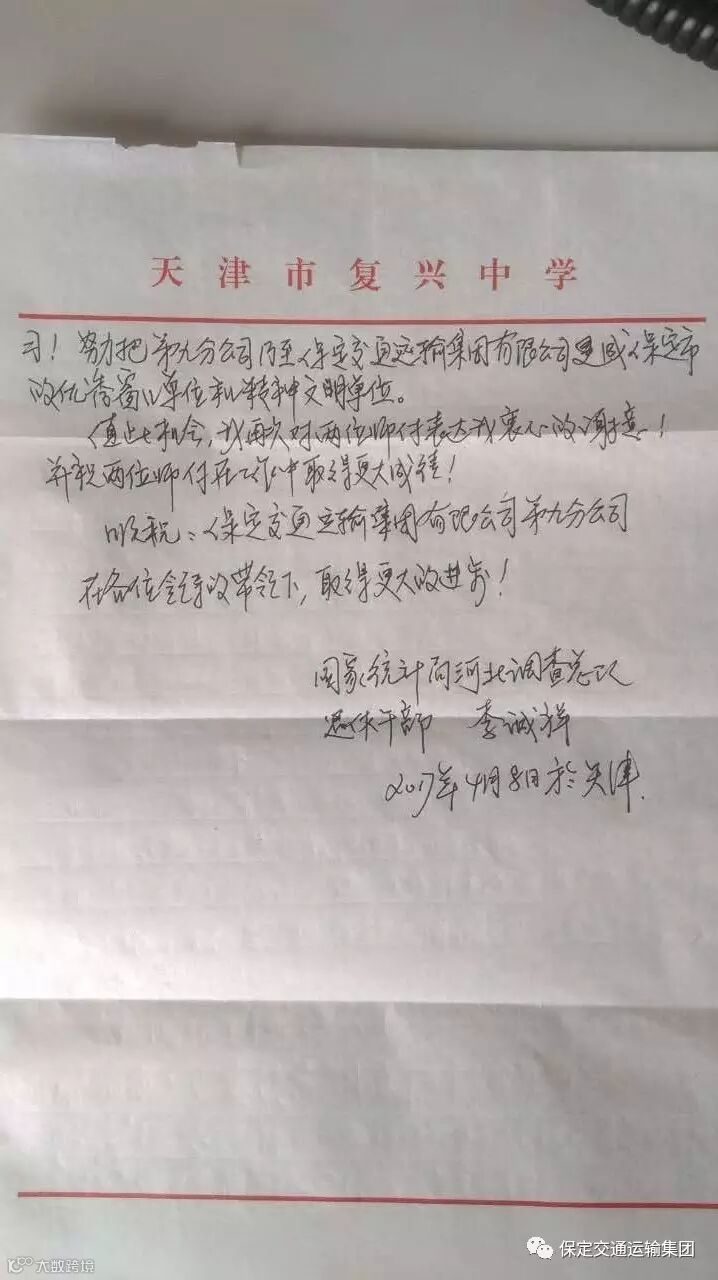 天津市复兴中学
习！努力把第九分公司乃至保定交通运输集团有限公司建成保定市
的优秀窗口单位和精神文明单位。
值此机会，我再次对两位师付表达我衷心的谢意！
并祝两位师付在工作中取得更大成绩！
顺祝：保定交通运输集团有限公司第九分公司
在各位领导的带领下，取得更大的进步！
国家统计局河北调查总队
退休干部 李诚祥
2017年4月8日於天津.
大数跨境
保定交通运输集团